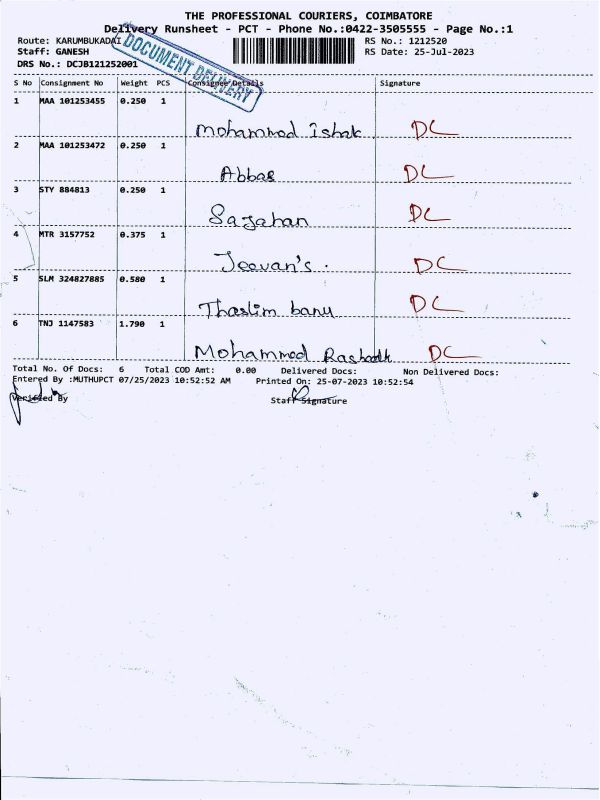 THE PROFESSIONAL COURIERS, COIMBATORE
Delivery Runsheet - PCT - Phone No.:0422-3505555 - Page No.:1
Route: KARUMBUKADAI RS No.: 1212520
Staff: GANESH RS Date: 25-Jul-2023
DRS No.: DCJB121252001
DOCUMENT DELIVERY
S No Consignment No Weight PCS Consignee Details Signature
1 MAA 101253455 0.250 1
Mohammed Ishak DC
2 MAA 101253472 0.250 1
Abbas DC
3 STY 884813 0.250 1
Sajahan DC
4 MTR 3157752 0.375 1
Jeevan's . DC
5 SLM 324827885 0.580 1
Thaslim banu DC
6 TNJ 1147583 1.790 1
Mohammed DC
Total No. Of Docs: 6 Total COD Amt: 0.00 Delivered Docs: Non Delivered Docs:
Entered By :MUTHUPCT 07/25/2023 10:52:52 AM Printed On: 25-07-2023 10:52:54
Verified By Staff Signature